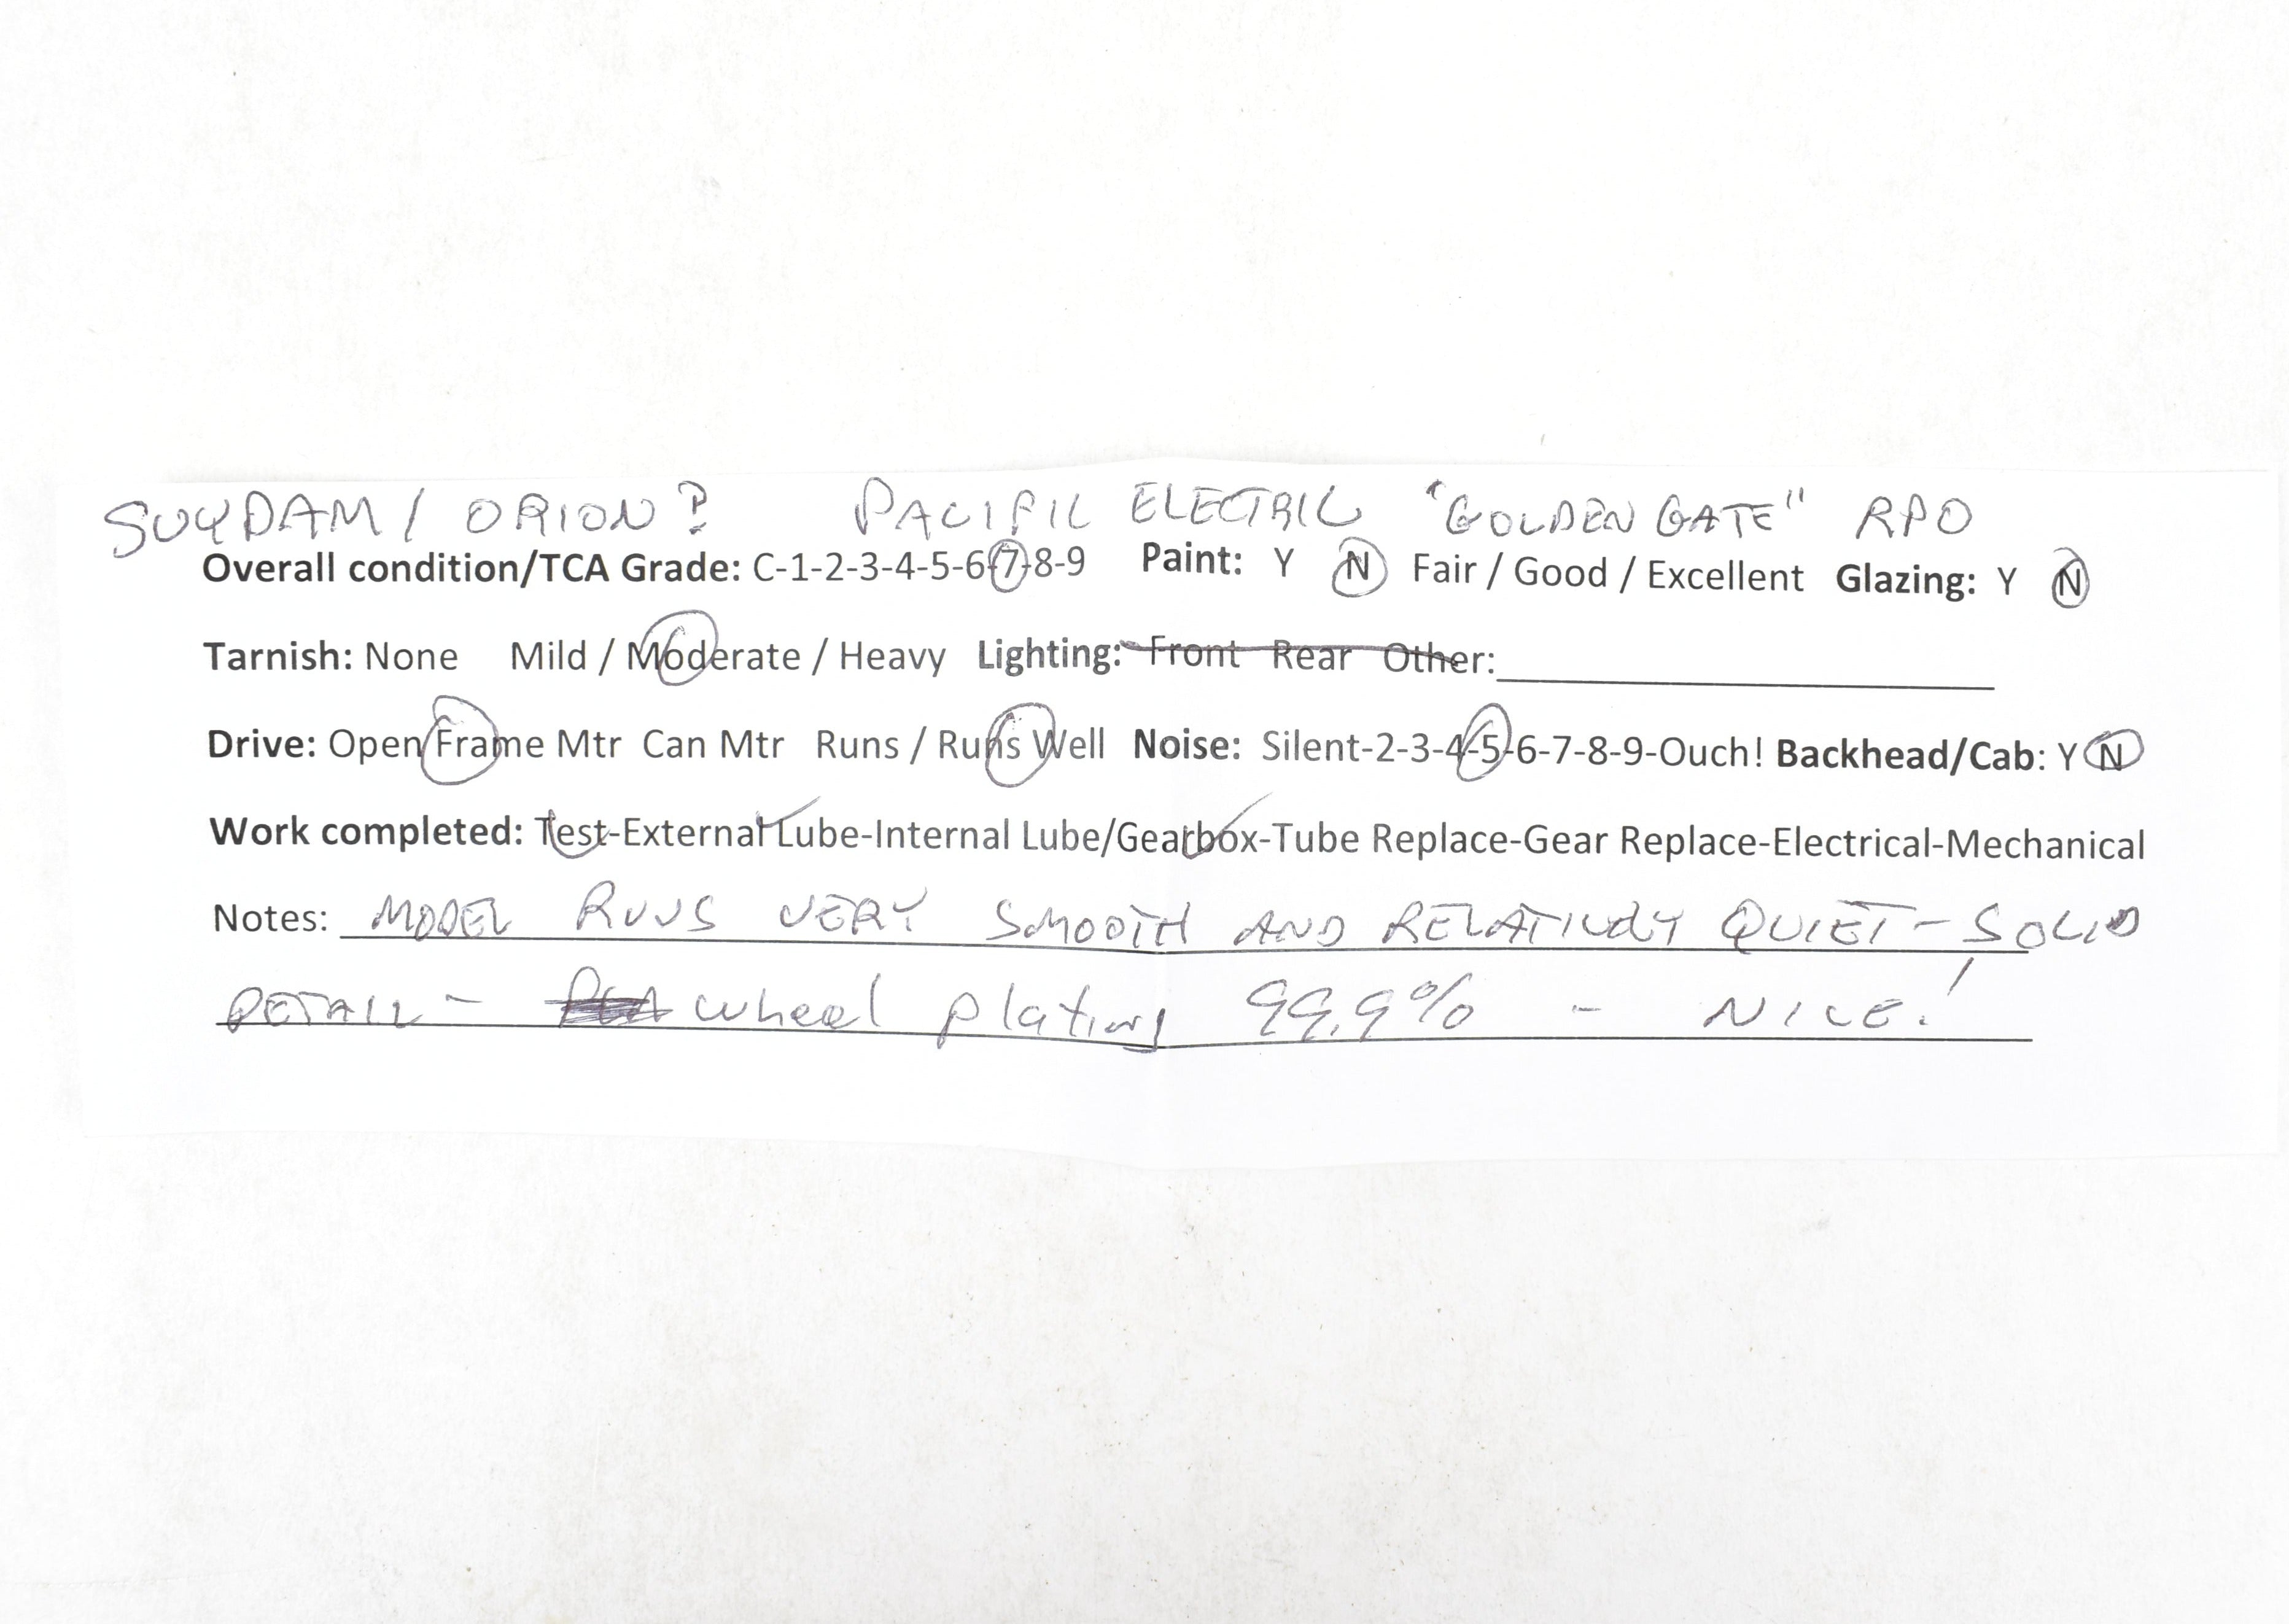 SUYDAM / ORION? PACIFIC ELECTRIC "GOLDEN GATE" RPO
Overall condition/TCA Grade: C-1-2-3-4-5-6-7-8-9 Paint: Y N Fair / Good / Excellent Glazing: Y N
Tarnish: None Mild / Moderate / Heavy Lighting: Front Rear Other:
Drive: Open Frame Mtr Can Mtr Runs / Runs Well Noise: Silent-2-3-4-5-6-7-8-9-Ouch! Backhead/Cab: Y N
Work completed: Test-External Lube-Internal Lube/Gearbox-Tube Replace-Gear Replace-Electrical-Mechanical
Notes: MODEL RUNS VERY SMOOTH AND RELATIVELY QUIET - SOLID
DETAIL - wheel plating 99.9% - NICE!